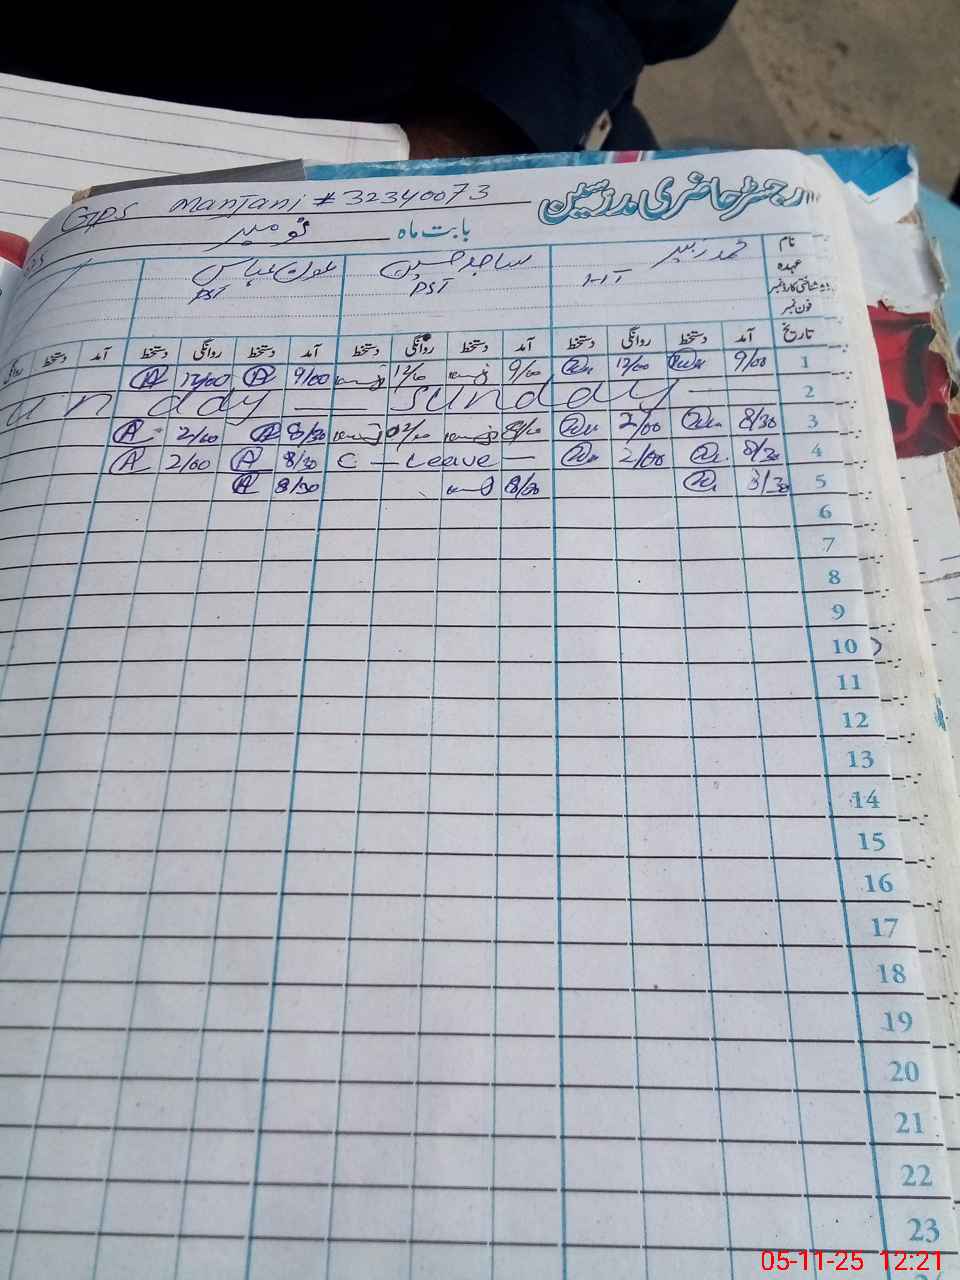 GPS Mantani # 32340073 رجسٹر حاضری مدرسین
بابت ماہ نومبر
نام محمد زبیر ساجد حسین عون عباس
عہدہ HT PST PST
شناختی کارڈ نمبر
فون نمبر
تاریخ آمد دستخط روانگی دستخط آمد دستخط روانگی دستخط آمد دستخط روانگی دستخط آمد دستخط
1 9/00 12/00 9/00 12/00 9/00 12/00
2 Sunday
3 8/30 2/00 2/00 8/30 2/00
4 8/30 2/00 C - Leave - 8/30 2/00
5 8/30 8/30 8/30
6
7
8
9
10
11
12
13
14
15
16
17
18
19
20
21
22
23
05-11-25 12:21